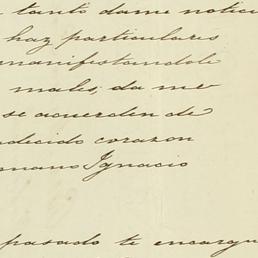 tanto dame notici
haz particulares
manifestandole
males, da me
se acuerden de
adecido corazon
mano Ignacio
pasado te encargu